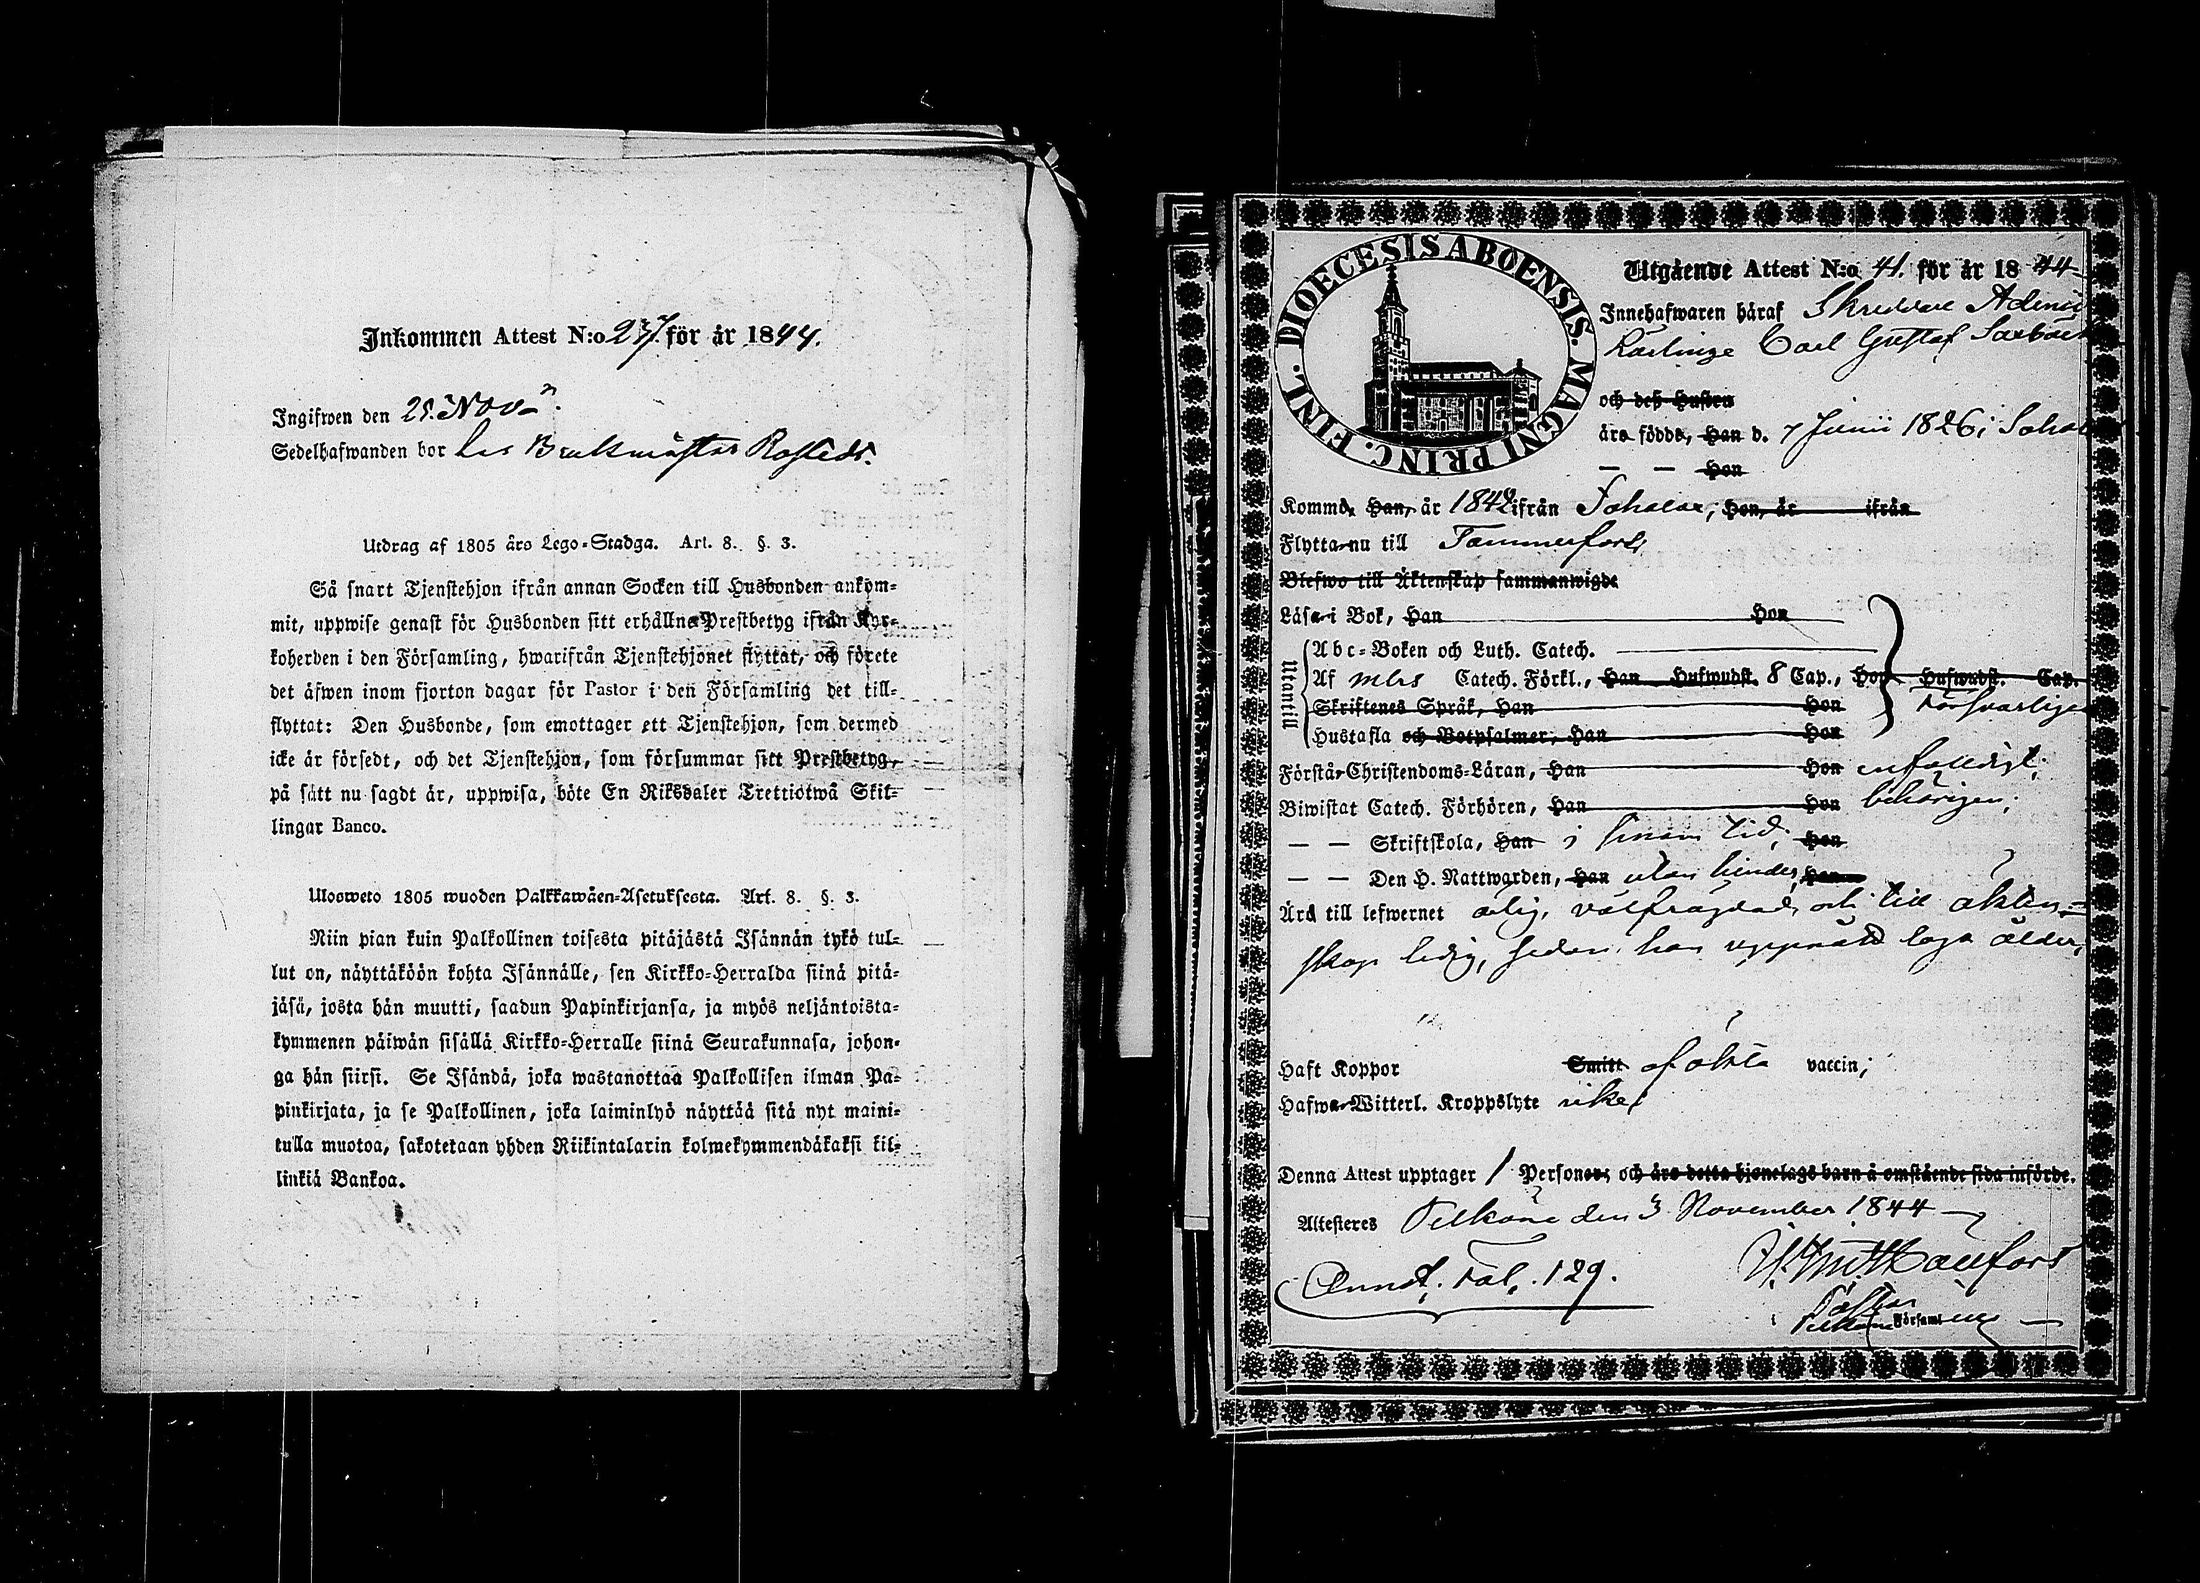 Inkommen Attest N:o 237. för år 1844.
Ingifwen den 25. Nov.
Sedelhafwanden bor hos Bruksmästar
Utdrag af 1805 års Lego-Stadga. Art. 8. §. 3.
Så snart Tjenstehjon ifrån annan Socken till Husbonden ankom-
mit, uppwise genast för Husbonden sitt erhållne Prestbetyg ifrån Kyr-
koherden i den Församling, hwarifrån Tjenstehjonet flyttat, och förete
det äfwen inom fjorton dagar för Pastor i den Församling det till-
flyttat: Den Husbonde, som emottager ett Tjenstehjon, som dermed
icke är försedt, och det Tjenstehjon, som försummar sitt Prestbetyg,
på sätt nu sagdt är, uppwisa, böte En Riksdaler Trettiotwå Skil-
lingar Banco.
Ulosweto 1805 wuoden Palkkawäen-Asetuksesta. Art. 8. §. 3.
Niin pian kuin Palkollinen toisesta pitäjästä Isännän tykö tul-
lut on, näyttäköön kohta Isännälle, sen Kirkko-Herralda siinä pitä-
jäsä, josta hän muutti, saadun Papinkirjansa, ja myös neljäntoista-
kymmenen päiwän sisällä Kirkko-Herralle siinä Seurakunnasa, johon-
ga hän siirsi. Se Isändä, joka wastanottaa Palkollisen ilman Pa-
pinkirjata, ja se Palkollinen, joka laiminlyö näyttää sitä nyt maini-
tulla muotoa, sakotetaan yhden Riikintalarin kolmekymmendäkaksi kil-
linkiä Bankoa.
DIOECESIS ABOENSIS. MAGNI PRINC. FINL.
Utgående Attest N:o 41. för år 1844
Innehafwaren häraf Skreddare
Lärlinge Carl Gustaf
och deß Hustru
äro födde, Han d. 7 Junii 1826 i
— — Hon
Komme, Han, år 1842 ifrån Hon, år ifrån
Flytta nu till Tammerfors
Blefwo till Äktenskap sammanwigde
Läsa i Bok, Han Hon
Utantill
Abc-Boken och Luth. Catech.
Af Catech. Förkl., Han Hufwudst. 8 Cap., Hon Hufwudst. Cap.
Skriftenes Språk, Han Hon försvarligen
Hustafla och Botpsalmer, Han Hon
Förstår Christendoms-Läran, Han Hon enfaldigt;
Biwistat Catech. Förhören, Han Hon behörigen;
— — Skriftskola, Han i sinom tid; Hon
— — Den H. Nattwarden, Han utan hinder, Hon
Äro till lefwernet ärlig, välfrägdad, och till äkten-
skap ledig, sedan han uppnått laga ålder;
Haft Koppor Smitt af äkta vaccin;
Hafwa Witterl. Kroppslyte icke;
Denna Attest upptager 1 Personer; och äro detta hjonelags barn å omstående sida införde.
Attesteres Pelkäne den 3 November 1844
Fol. 129.
Pastor
i Pelkäne Församling